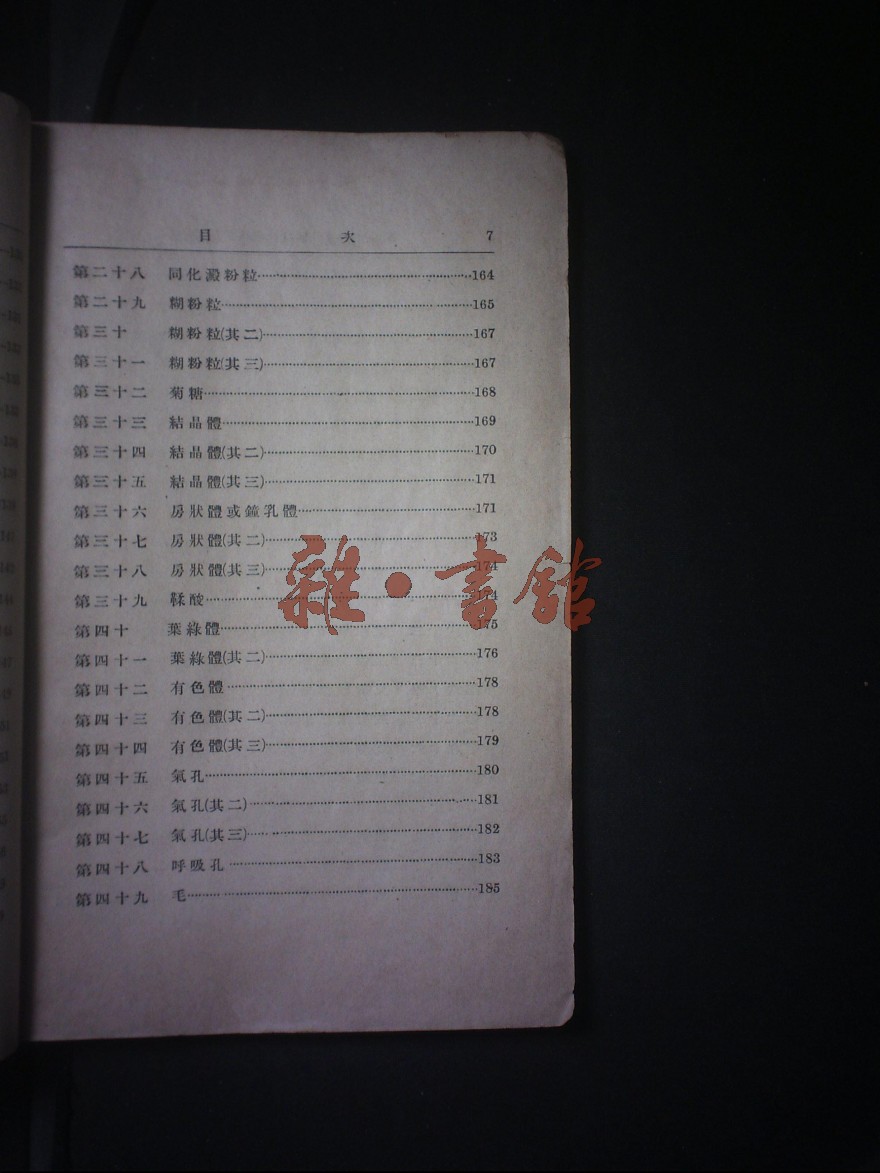 目 次 7
第二十八 同化澱粉粒 164
第二十九 糊粉粒 165
第三十 糊粉粒(其二) 167
第三十一 糊粉粒(其三) 167
第三十二 菊糖 168
第三十三 結晶體 169
第三十四 結晶體(其二) 170
第三十五 結晶體(其三) 171
第三十六 房狀體或鐘乳體 171
第三十七 房狀體(其二) 173
第三十八 房狀體(其三) 174
第三十九 鞣酸 174
第四十 葉綠體 175
第四十一 葉綠體(其二) 176
第四十二 有色體 178
第四十三 有色體(其二) 178
第四十四 有色體(其三) 179
第四十五 氣孔 180
第四十六 氣孔(其二) 181
第四十七 氣孔(其三) 182
第四十八 呼吸孔 183
第四十九 毛 185
雜•書館